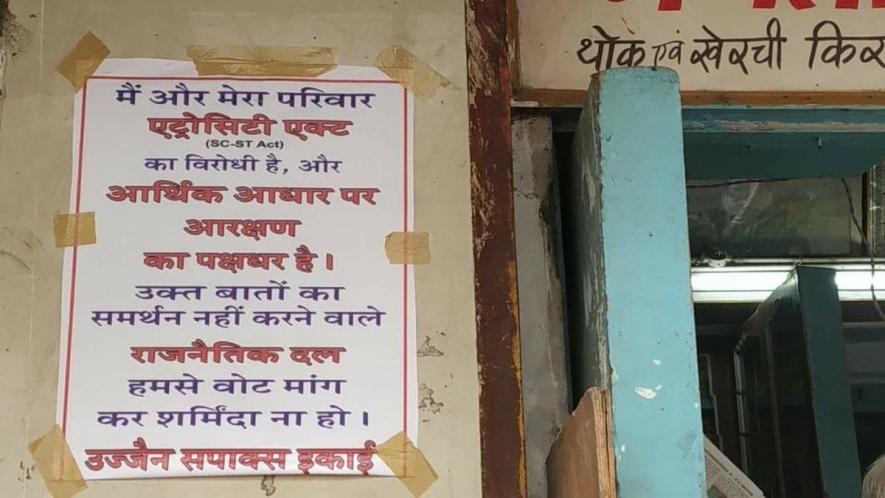 मैं और मेरा परिवार
एट्रोसिटी एक्ट
(SC-ST Act)
का विरोधी है, और
आर्थिक आधार पर
आरक्षण
का पक्षधर है।
उक्त बातों का
समर्थन नहीं करने वाले
राजनैतिक दल
हमसे वोट मांग
कर शर्मिंदा ना हो।
उज्जैन सपाक्स इकाई
थोक एवं खेरची